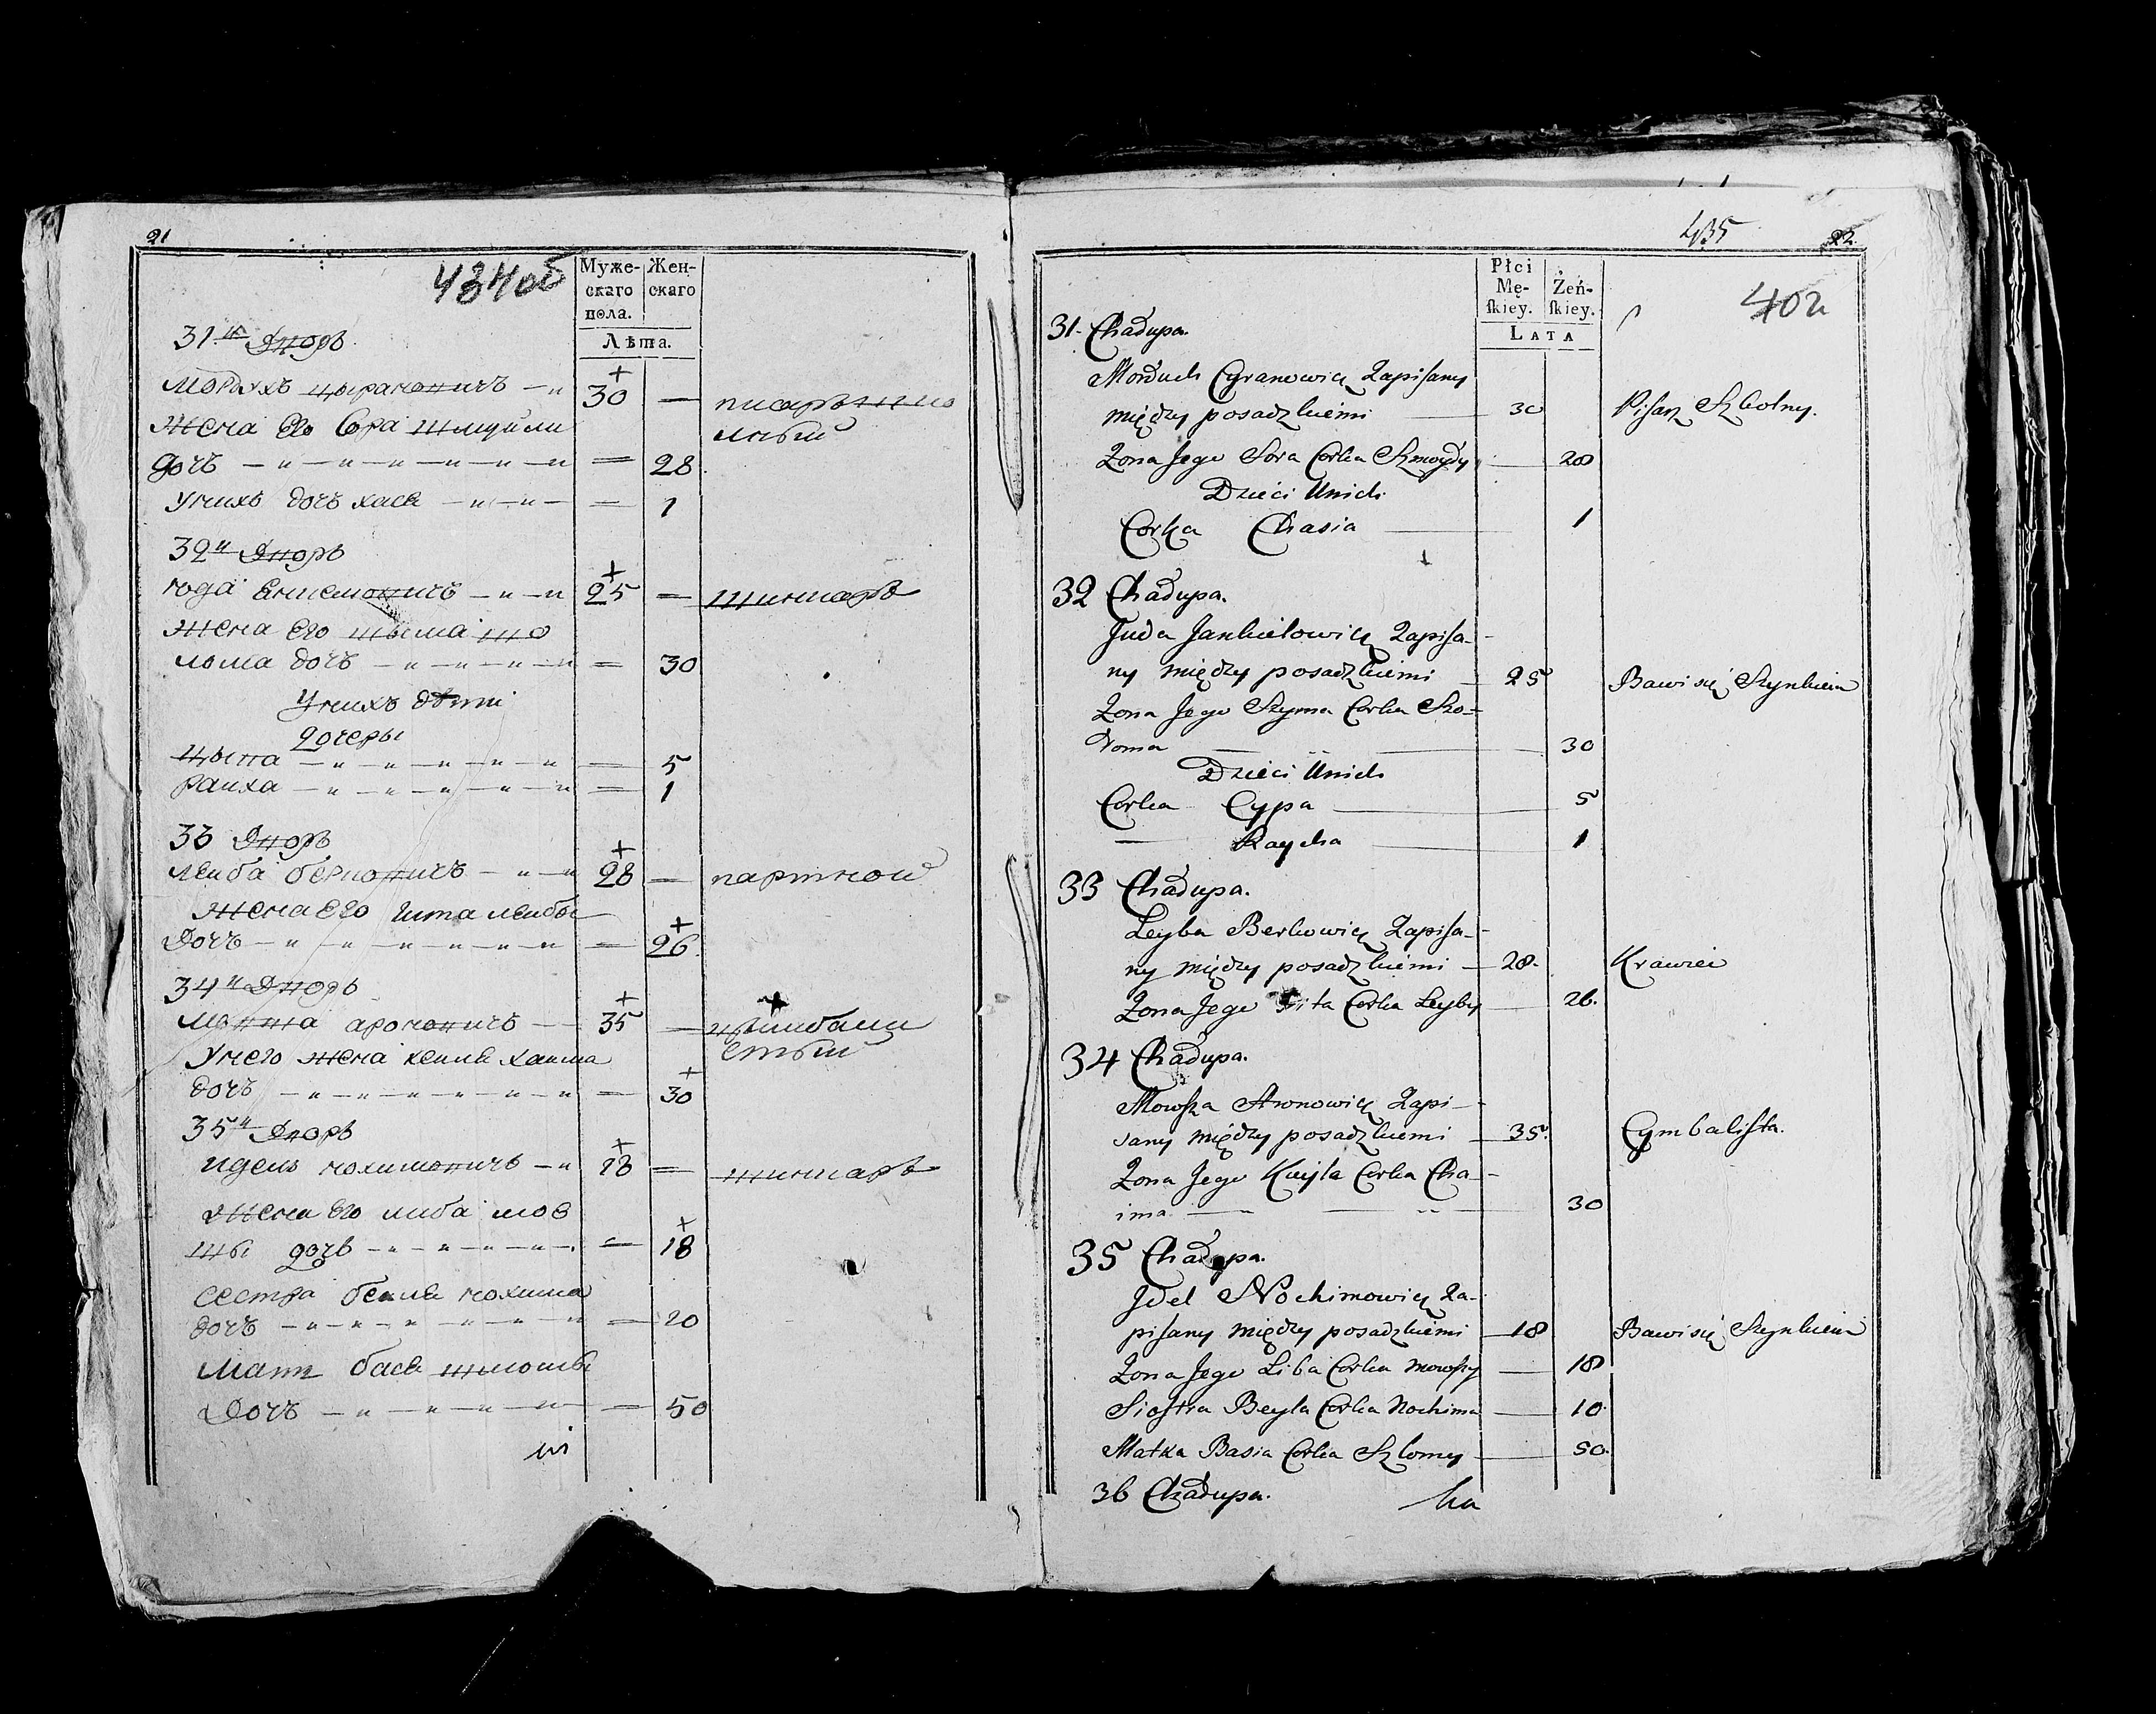 21
434 об
Муже-
скаго
пола.
Жен-
скаго
Лѣта.
31й Дворъ
Мордухъ Цырановичъ — 30 — писаръ шко
Жена Его Сора Шмуйли
льный
дочъ — 28
У нихъ дочъ хася — 1
32й Дворъ
Юда Енкелевичъ — 25 — шинкаръ
Жена Его шыма шо
лома дочъ — 30
У нихъ дѣти
дочеры
Цыпа — 5
Райха — 1
33 Дворъ
Лейба берковичъ — 28 — партной
Жена Его гита лейбы
Дочъ — 26
34й Дворъ
Мовша ароновичъ — 35 — цымбали
стый
У него жена кейля хаима
дочъ — 30
35й Дворъ
Идель нохимовичъ — 18 — шинкаръ
Жена Его либа мов
шы дочь — 18
Сестра бейля нохима
дочъ — 20
Мать бася шломы
Дочъ — 50
435
22.
402
Płci
Mę-
ſkiey.
Żeń-
ſkiey.
LATA
31. Chałupa.
Morduch Cyranowicz Zapisany
między posadzkiemi — 30 Pisarz Szkolny.
Zona Jego Sora Corka Szmoyły — 28
Dzieci Unich
Corka Chasia — 1
32 Chałupa.
Juda Jankielowicz Zapisa-
ny między posadzkiemi — 25 Bawi się Szynkiem
Zona Jego Szyma Corka Szo-
loma — 30
Dzieci Unich
Corka Cypa — 5
— Raycha — 1
33 Chałupa.
Leyba Berkowicz Zapisa-
ny między posadzkiemi — 28. Krawiec
Zona Jego Gita Corka Leyby — 26.
34 Chałupa.
Mowsza Aronowicz Zapi-
sany między posadzkiemi — 35. Cymbalista.
Zona Jego Kieyla Corka Cha-
ima — 30
35 Chałupa.
Jdel Nochimowicz Za-
pisany między posadzkiemi — 18 Bawi się Szynkiem
Zona Jego Liba Corka Mowszy — 18
Siostra Beyla Corka Nochima — 10.
Matka Basia Corka Szlomy — 50.
36 Chałupa.